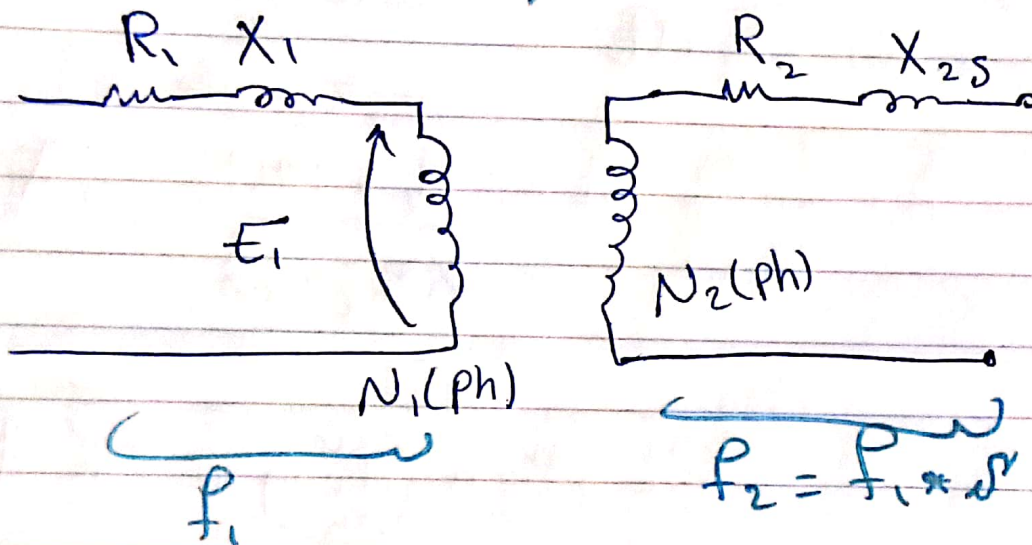 R₁ X₁ R₂ X₂s
E₁
N₂(ph)
N₁(ph)
f₁
f₂ = f₁ * s